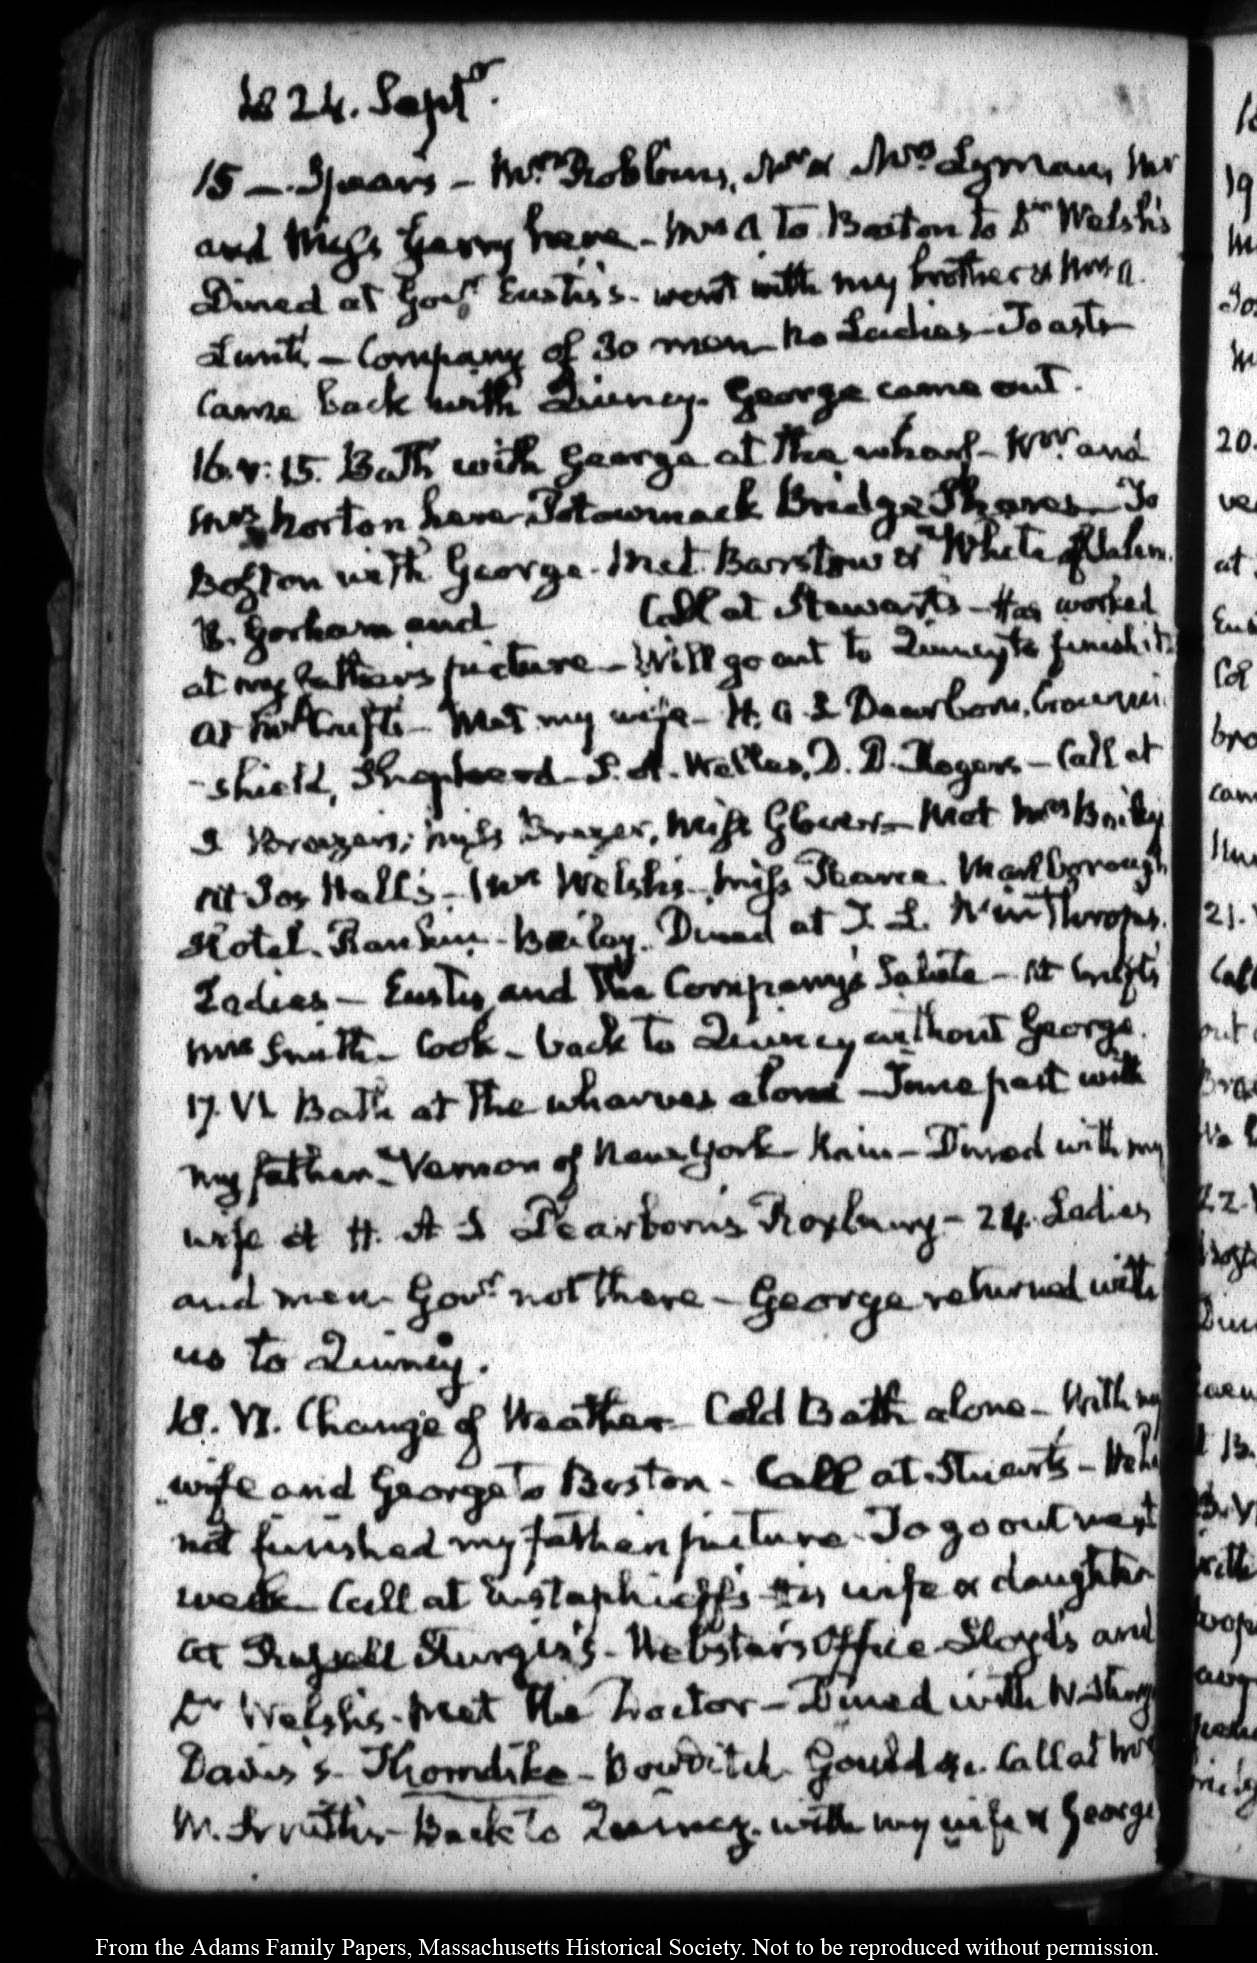 1824. Septr.
15 —. Spear's — Mrs. Robbins, Mr & Mrs Lyman, Mr
and Miss Gerry here — Mrs A to Boston to Dr Welsh's
Dined at Govr Eustis's — went with my brother & Mr A.
Lunt — Company of 30 men — No Ladies — Toasts
Came back with Quincy. George came out.
16. V: 15. Bath with George at the wharf — Mr. and
Mrs Norton here — Potowmack Bridge Shares — To
Boston with George. Met Barstow & White of Salem.
B. Gorham and Call at Stewart's — Has worked
at my father's picture — Will go out to Quincy to finish it
at Mrs Cruft's — Met my wife — H. A. S Dearborn, Crownin
-shield, Shepherd — S. A. Welles, D. D. Rogers — Call at
J Brazer's; Miss Brazer, Miss Glover — Met Mrs Bailey
at Jos Hall's — Dr Welsh's — Miss Pearce. Marlborough
Hotel. Rankin — Bailey. Dined at T. L. Winthrop's.
Ladies — Eustis, and the Company's Salute — At Cruft's
Mrs Smith — Cook — back to Quincy without George.
17. VI. Bath at the wharves alone — Time past with
my father — Vernon of New York — Rain — Dined with my
wife at H. A S Dearborn's Roxbury — 24 Ladies
and men Govr not there — George returned with
us to Quincy.
18. VI. Change of Weather — Cold Bath alone — With my
wife and George to Boston — Call at Stuart's — He has
not finished my father's picture — To go out next
week — Call at Eustaphieff's — His wife & daughter
at Russell Sturgis's — Webster's Office — Lloyd's and
Dr Welsh's — Met the Doctor — Dined with
Davis's — Thorndike — Bowditch Gould &c. Call at Mrs
W. Smith's — Back to Quincy with my wife & George